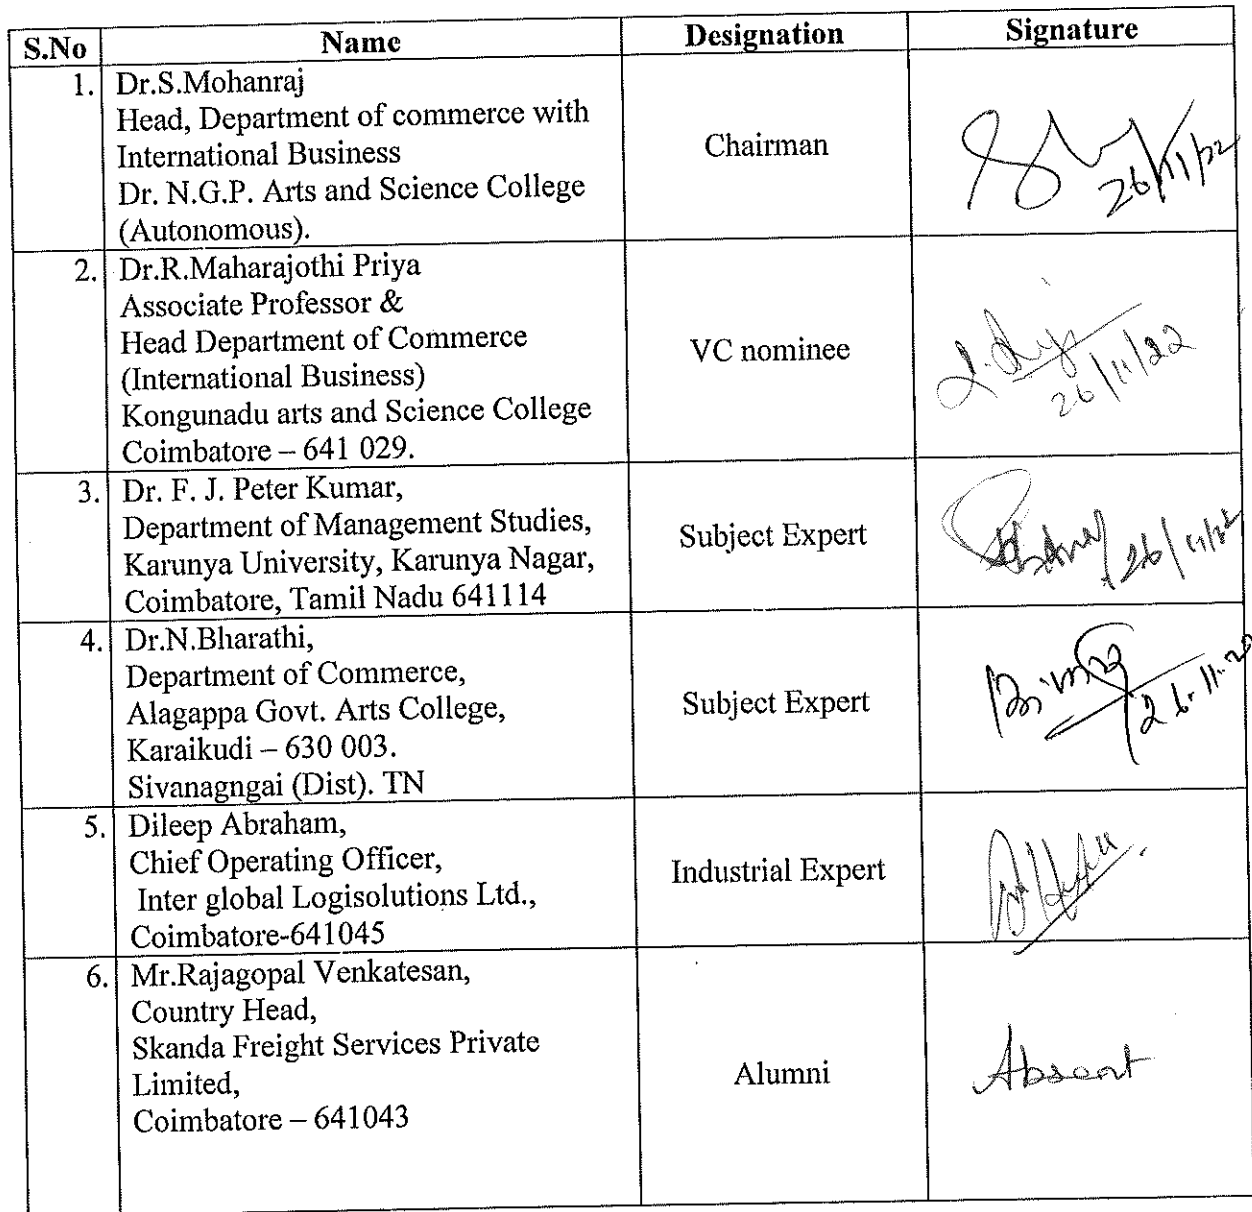 S.No Name Designation Signature
1. Dr.S.Mohanraj
Head, Department of commerce with
International Business
Dr. N.G.P. Arts and Science College
(Autonomous).
Chairman
26/11/22
2. Dr.R.Maharajothi Priya
Associate Professor &
Head Department of Commerce
(International Business)
Kongunadu arts and Science College
Coimbatore – 641 029.
VC nominee
26/11/22
3. Dr. F. J. Peter Kumar,
Department of Management Studies,
Karunya University, Karunya Nagar,
Coimbatore, Tamil Nadu 641114
Subject Expert
26/11/22
4. Dr.N.Bharathi,
Department of Commerce,
Alagappa Govt. Arts College,
Karaikudi – 630 003.
Sivanagngai (Dist). TN
Subject Expert
5. Dileep Abraham,
Chief Operating Officer,
Inter global Logisolutions Ltd.,
Coimbatore-641045
Industrial Expert
6. Mr.Rajagopal Venkatesan,
Country Head,
Skanda Freight Services Private
Limited,
Coimbatore – 641043
Alumni
Absent